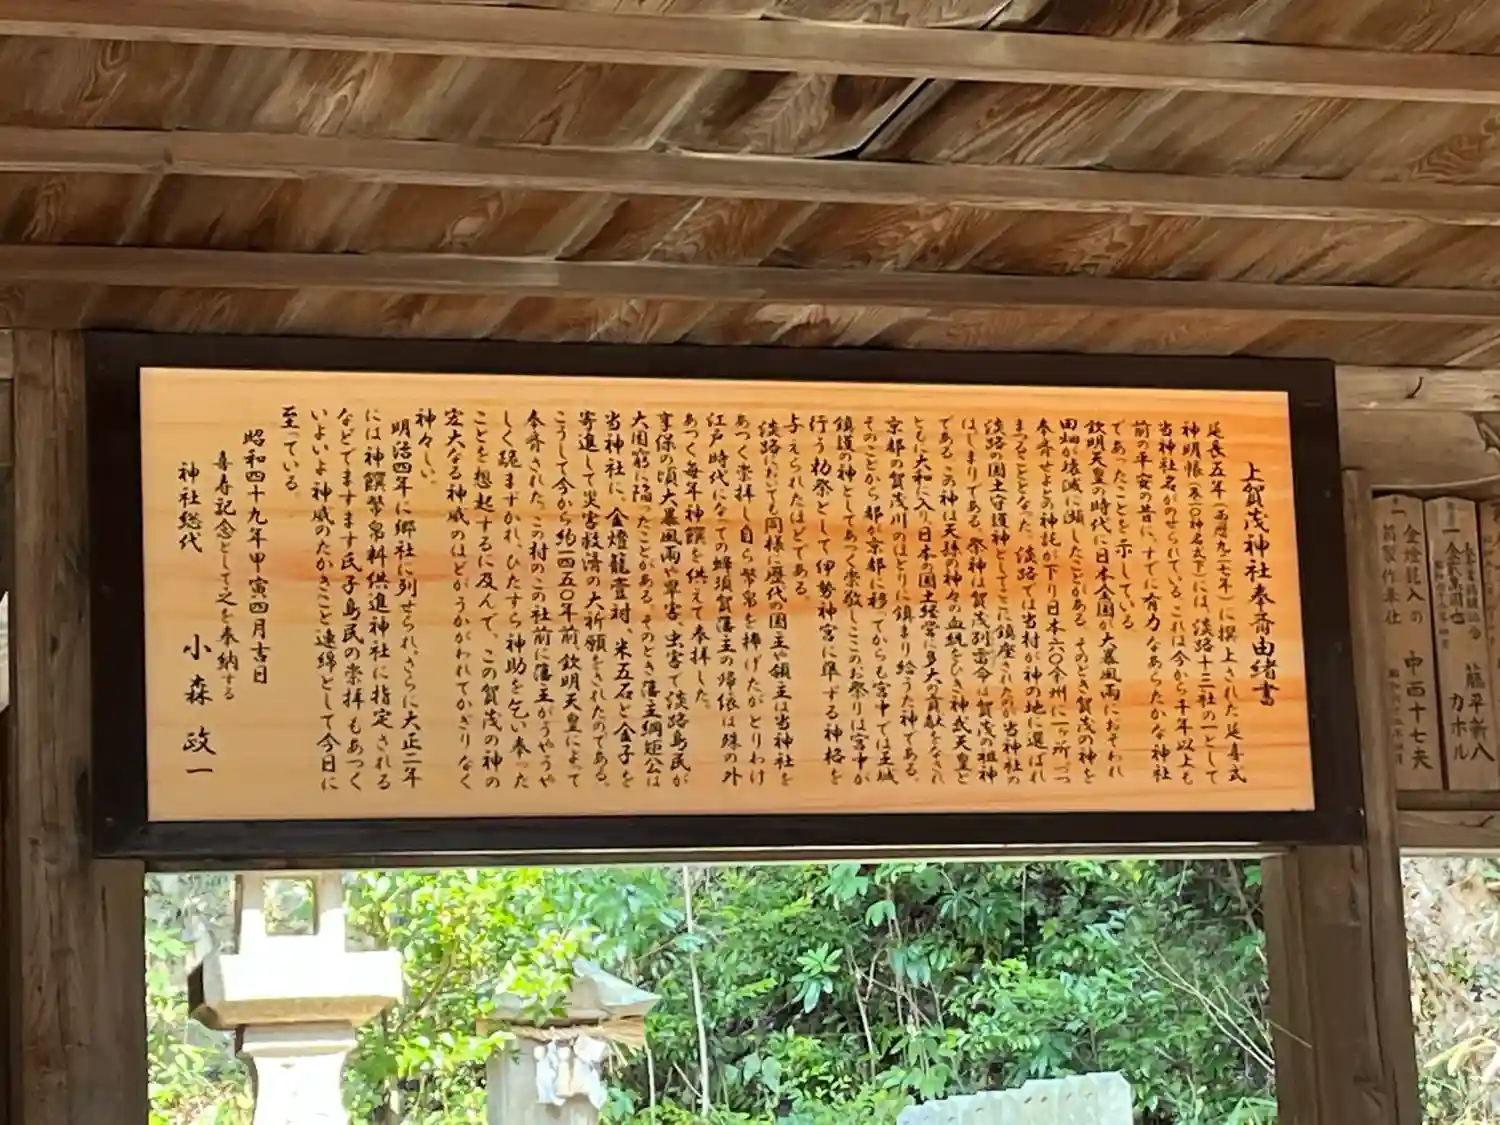 上賀茂神社奉斎由緒書
延長五年(西暦九二七年)に撰上された延喜式
神明帳(巻一〇神名式下)には、淡路十三社の一として
当神社名がのせられている。これは今から千年以上も
前の平安の昔に、すでに有力なあらたかな神社
であったことを示している。
欽明天皇の時代に日本全国が大暴風雨におそわれ
田畑が壊滅に瀕したことがある。そのとき賀茂の神を
奉斎せよとの神託が下り日本六〇余州に一ヶ所づつ
まつることとなった。淡路では当村が神の地に選ばれ
淡路の国土守護神としてここに鎮座されたのが当神社の
はじまりである。祭神は賀茂別雷命は賀茂の祖神
である。この神は天孫の神々の血統をひき神武天皇と
ともに大和に入り日本の国土経営に多大の貢献をなされ
京都の賀茂川のほとりに鎮まり給うた神である。
そのことから都が京都に移ってからも宮中では王城
鎮護の神としてあつく崇敬しここのお祭りは宮中が
行う勅祭として伊勢神宮に準ずる神格を
与えられたほどである。
淡路においても同様に歴代の国主や領主は当神社を
あつく崇拝し自ら幣帛を捧げたがとりわけ
江戸時代になっての蜂須賀藩主の帰依は殊の外
あつく毎年神饌を供えて奉拝した。
享保の頃大暴風雨や旱害、虫害で淡路島民が
大困窮に陥ったことがある。そのとき藩主綱矩公は
当神社に、金燈籠壹対、米五石と金子を
寄進して災害救済の大祈願をされたのである。
こうして今から約一四五〇年前、欽明天皇によって
奉斎された、この村のこの社前に藩主がうやうや
しく跪まずかれ、ひたすら神助を乞い奉った
ことを想起するに及んで、この賀茂の神の
宏大なる神威のほどがうかがわれてかぎりなく
神々しい。
明治四年に郷社に列せられ、さらに大正二年
には神饌幣帛料供進神社に指定される
などでますます氏子島民の崇拝もあつく
いよいよ神威のたかきこと連綿として今日に
至っている。
昭和四十九年甲寅四月吉日
喜寿記念として之を奉納する
神社総代 小森政一
藤平新八
カホル
一金燈籠入の
前製作奉仕
中西十七夫